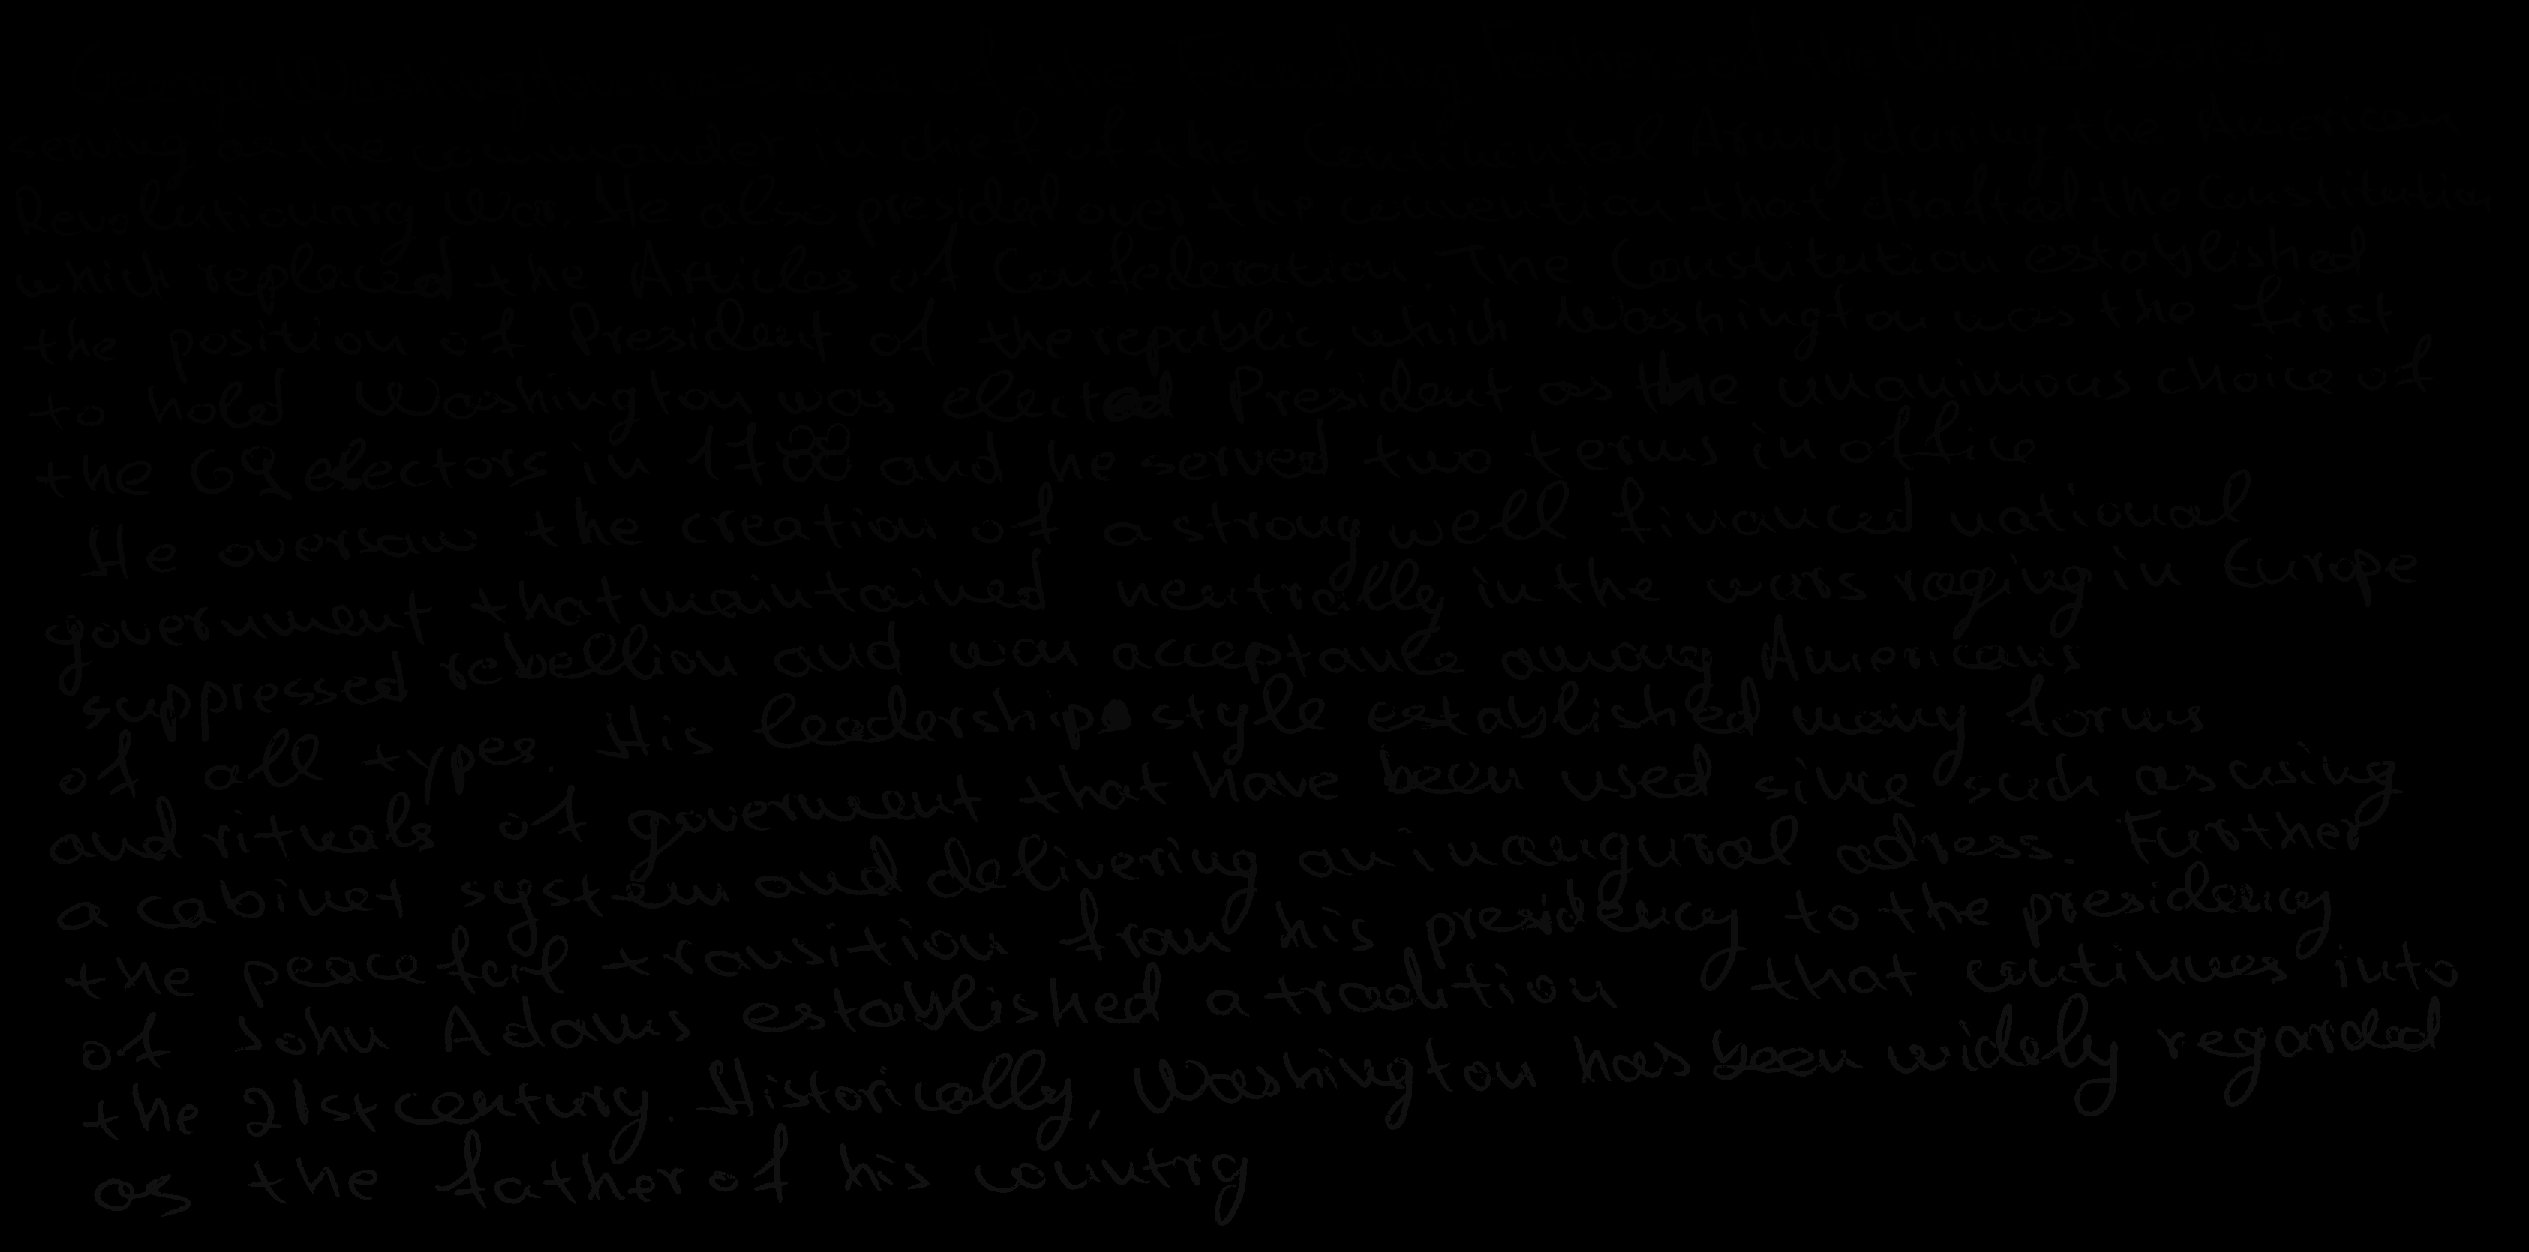 serving as the commander in chief of the Continental Army during the American
Revolutionary War. He also presided over the convention that drafted the Constitution
which replaced the Articles of Confederation. The Constitution established
the position of President of the republic, which Washington was the first
to hold Washington was elected President as the unanimous choice of
the 69 electors in 1788 and he served two terms in office
He oversaw the creation of a strong well financed national
government that maintained neutrally in the wars raging in Europe
suppressed rebellion and won acceptance among Americans
of all types. His leadership style established many forms
and rituals of goverment that have been used since such as using
a cabinet system and delivering an inaugural adress. Further
the peaceful transition from his presidency to the presidency
of John Adams established a tradition that continues into
the 21st century. Historically, Washington has been widely regarded
as the father of his country